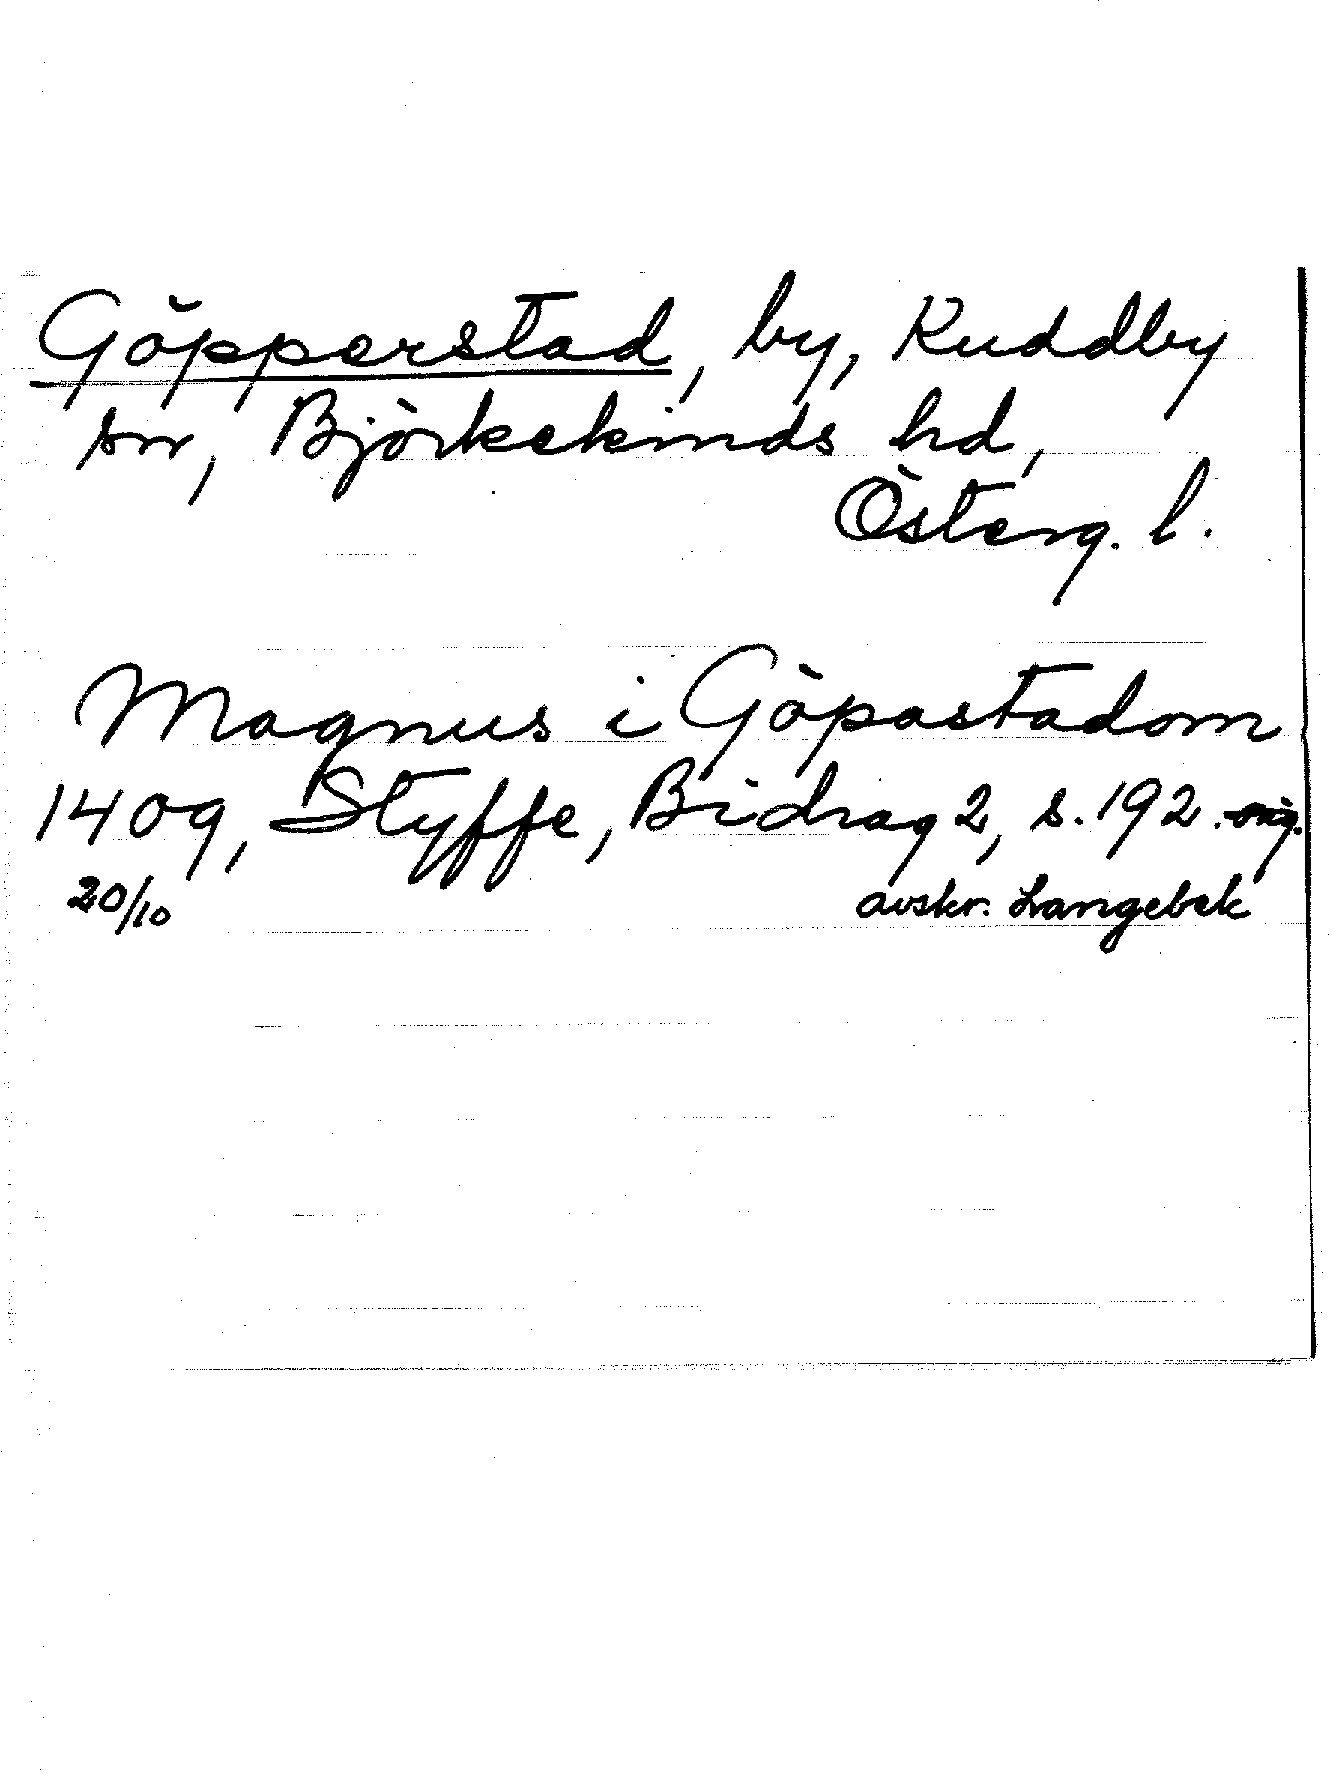 Göpperstad, by, Kuddby
sn, Björkekinds hd,
Österg. l.
Magnus i Göpastadom
1409, Styffe, Bidrag 2, s. 192. orig.
20/10 avskr. Langebek